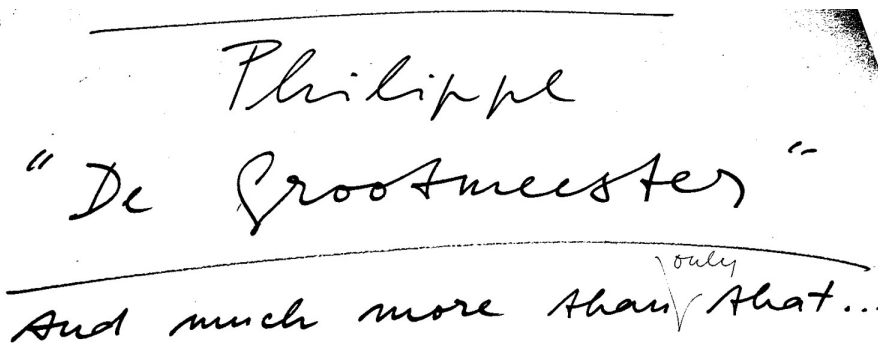 Philippe
"De Grootmeester"
And much more than only that...